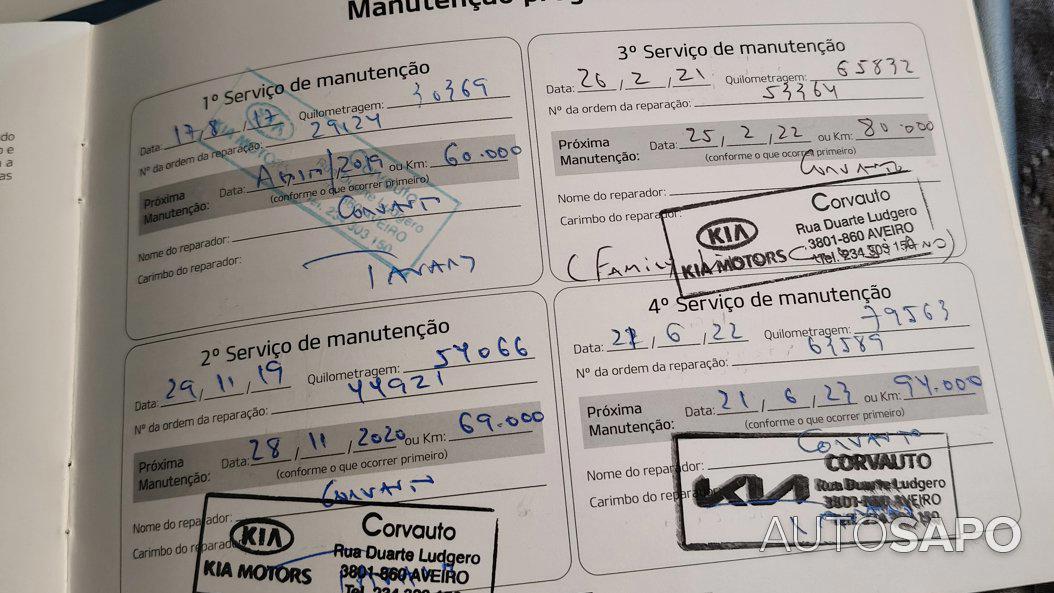 Manutenção
1º Serviço de manutenção
Data: 17/8/17 Quilometragem: 30369
Nº da ordem da reparação: 29124
Próxima Manutenção: Data: /2019 ou Km: 60.000
(conforme o que ocorrer primeiro)
Nome do reparador: Corvauto
Carimbo do reparador:
2º Serviço de manutenção
Data: 29/11/19 Quilometragem: 54066
Nº da ordem da reparação: 44921
Próxima Manutenção: Data: 28/11/2020 ou Km: 69.000
(conforme o que ocorrer primeiro)
Nome do reparador: Corvauto
Carimbo do reparador:
KIA
KIA MOTORS
Corvauto
Rua Duarte Ludgero
3801-860 AVEIRO
3º Serviço de manutenção
Data: 26/2/21 Quilometragem: 65832
Nº da ordem da reparação: 53364
Próxima Manutenção: Data: 25/2/22 ou Km: 80.000
(conforme o que ocorrer primeiro)
Nome do reparador: Corvauto
Carimbo do reparador:
KIA
KIA MOTORS
Corvauto
Rua Duarte Ludgero
3801-860 AVEIRO
(Family
4º Serviço de manutenção
Data: 22/6/22 Quilometragem: 79563
Nº da ordem da reparação: 63589
Próxima Manutenção: Data: 21/6/23 ou Km: 94.000
(conforme o que ocorrer primeiro)
Nome do reparador: Corvauto
Carimbo do reparador:
KIA
CORVAUTO
Rua Duarte Ludgero
AVEIRO
AUTOSAPO